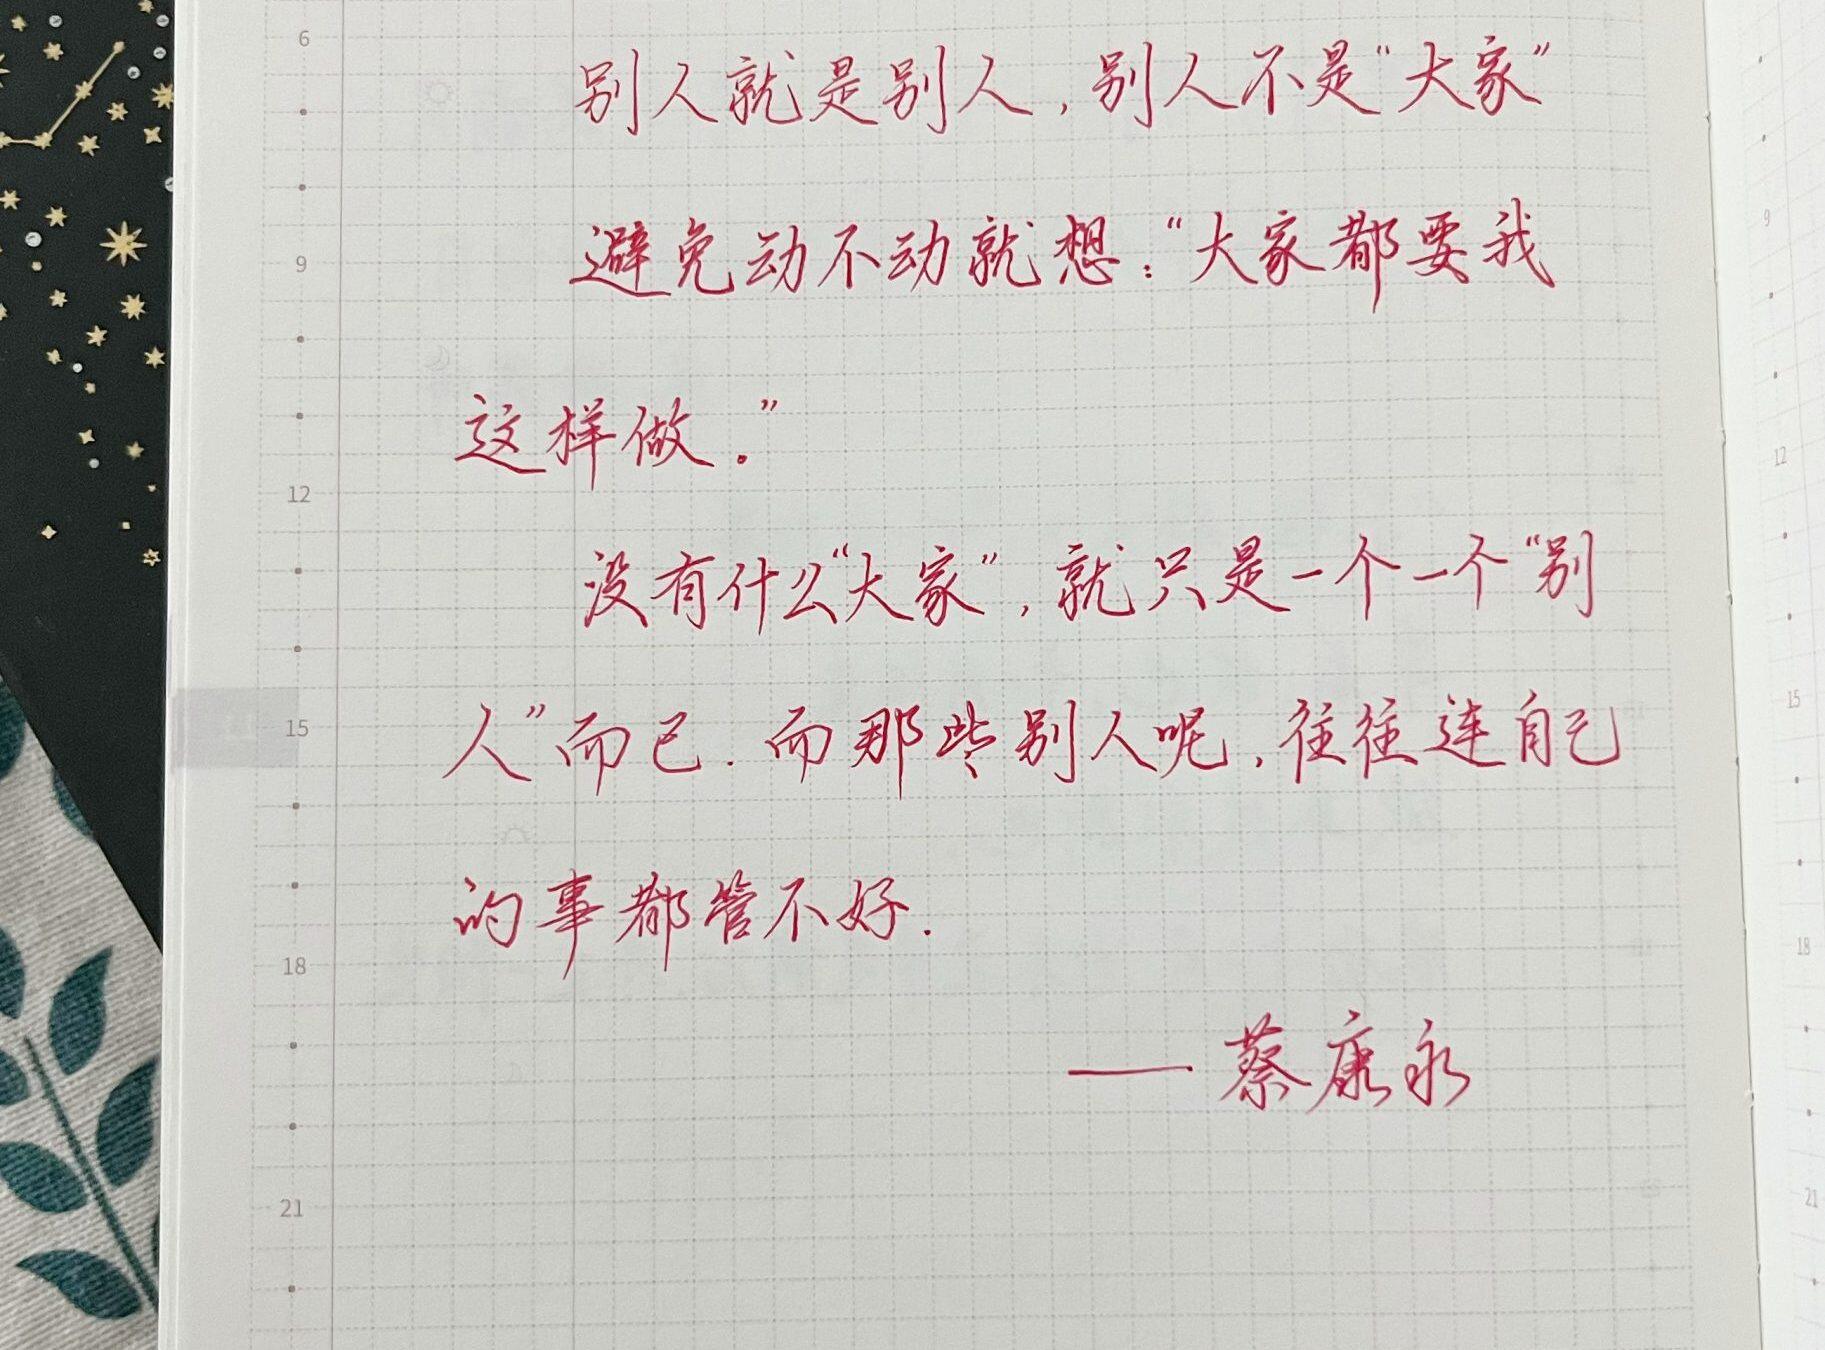 6
别人就是别人,别人不是“大家”
9
避免动不动就想:“大家都要我
这样做.”
12
没有什么“大家”,就只是一个一个“别
15
人”而已.而那些别人呢,往往连自己
的事都管不好.
18
——蔡康永
21
9
12
15
18
21